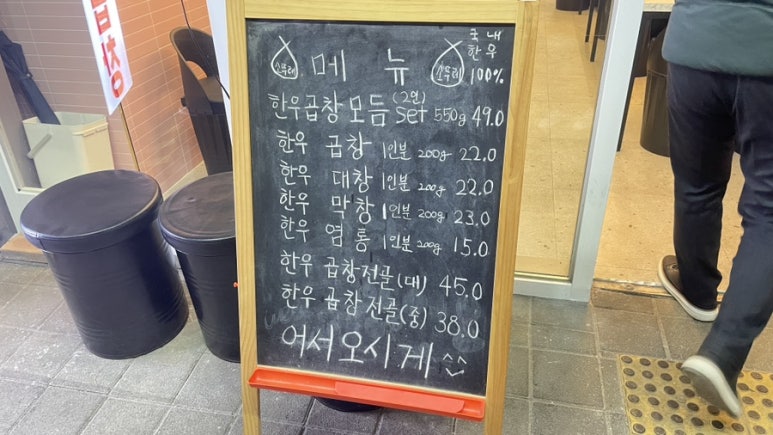 메뉴
국내
한우
100%
한우곱창모듬(2인) set 550g 49.0
한우 곱창 1인분 200g 22.0
한우 대창 1인분 200g 22.0
한우 막창 1인분 200g 23.0
한우 염통 1인분 200g 15.0
한우 곱창전골(대) 45.0
한우 곱창전골(중) 38.0
어서오시게